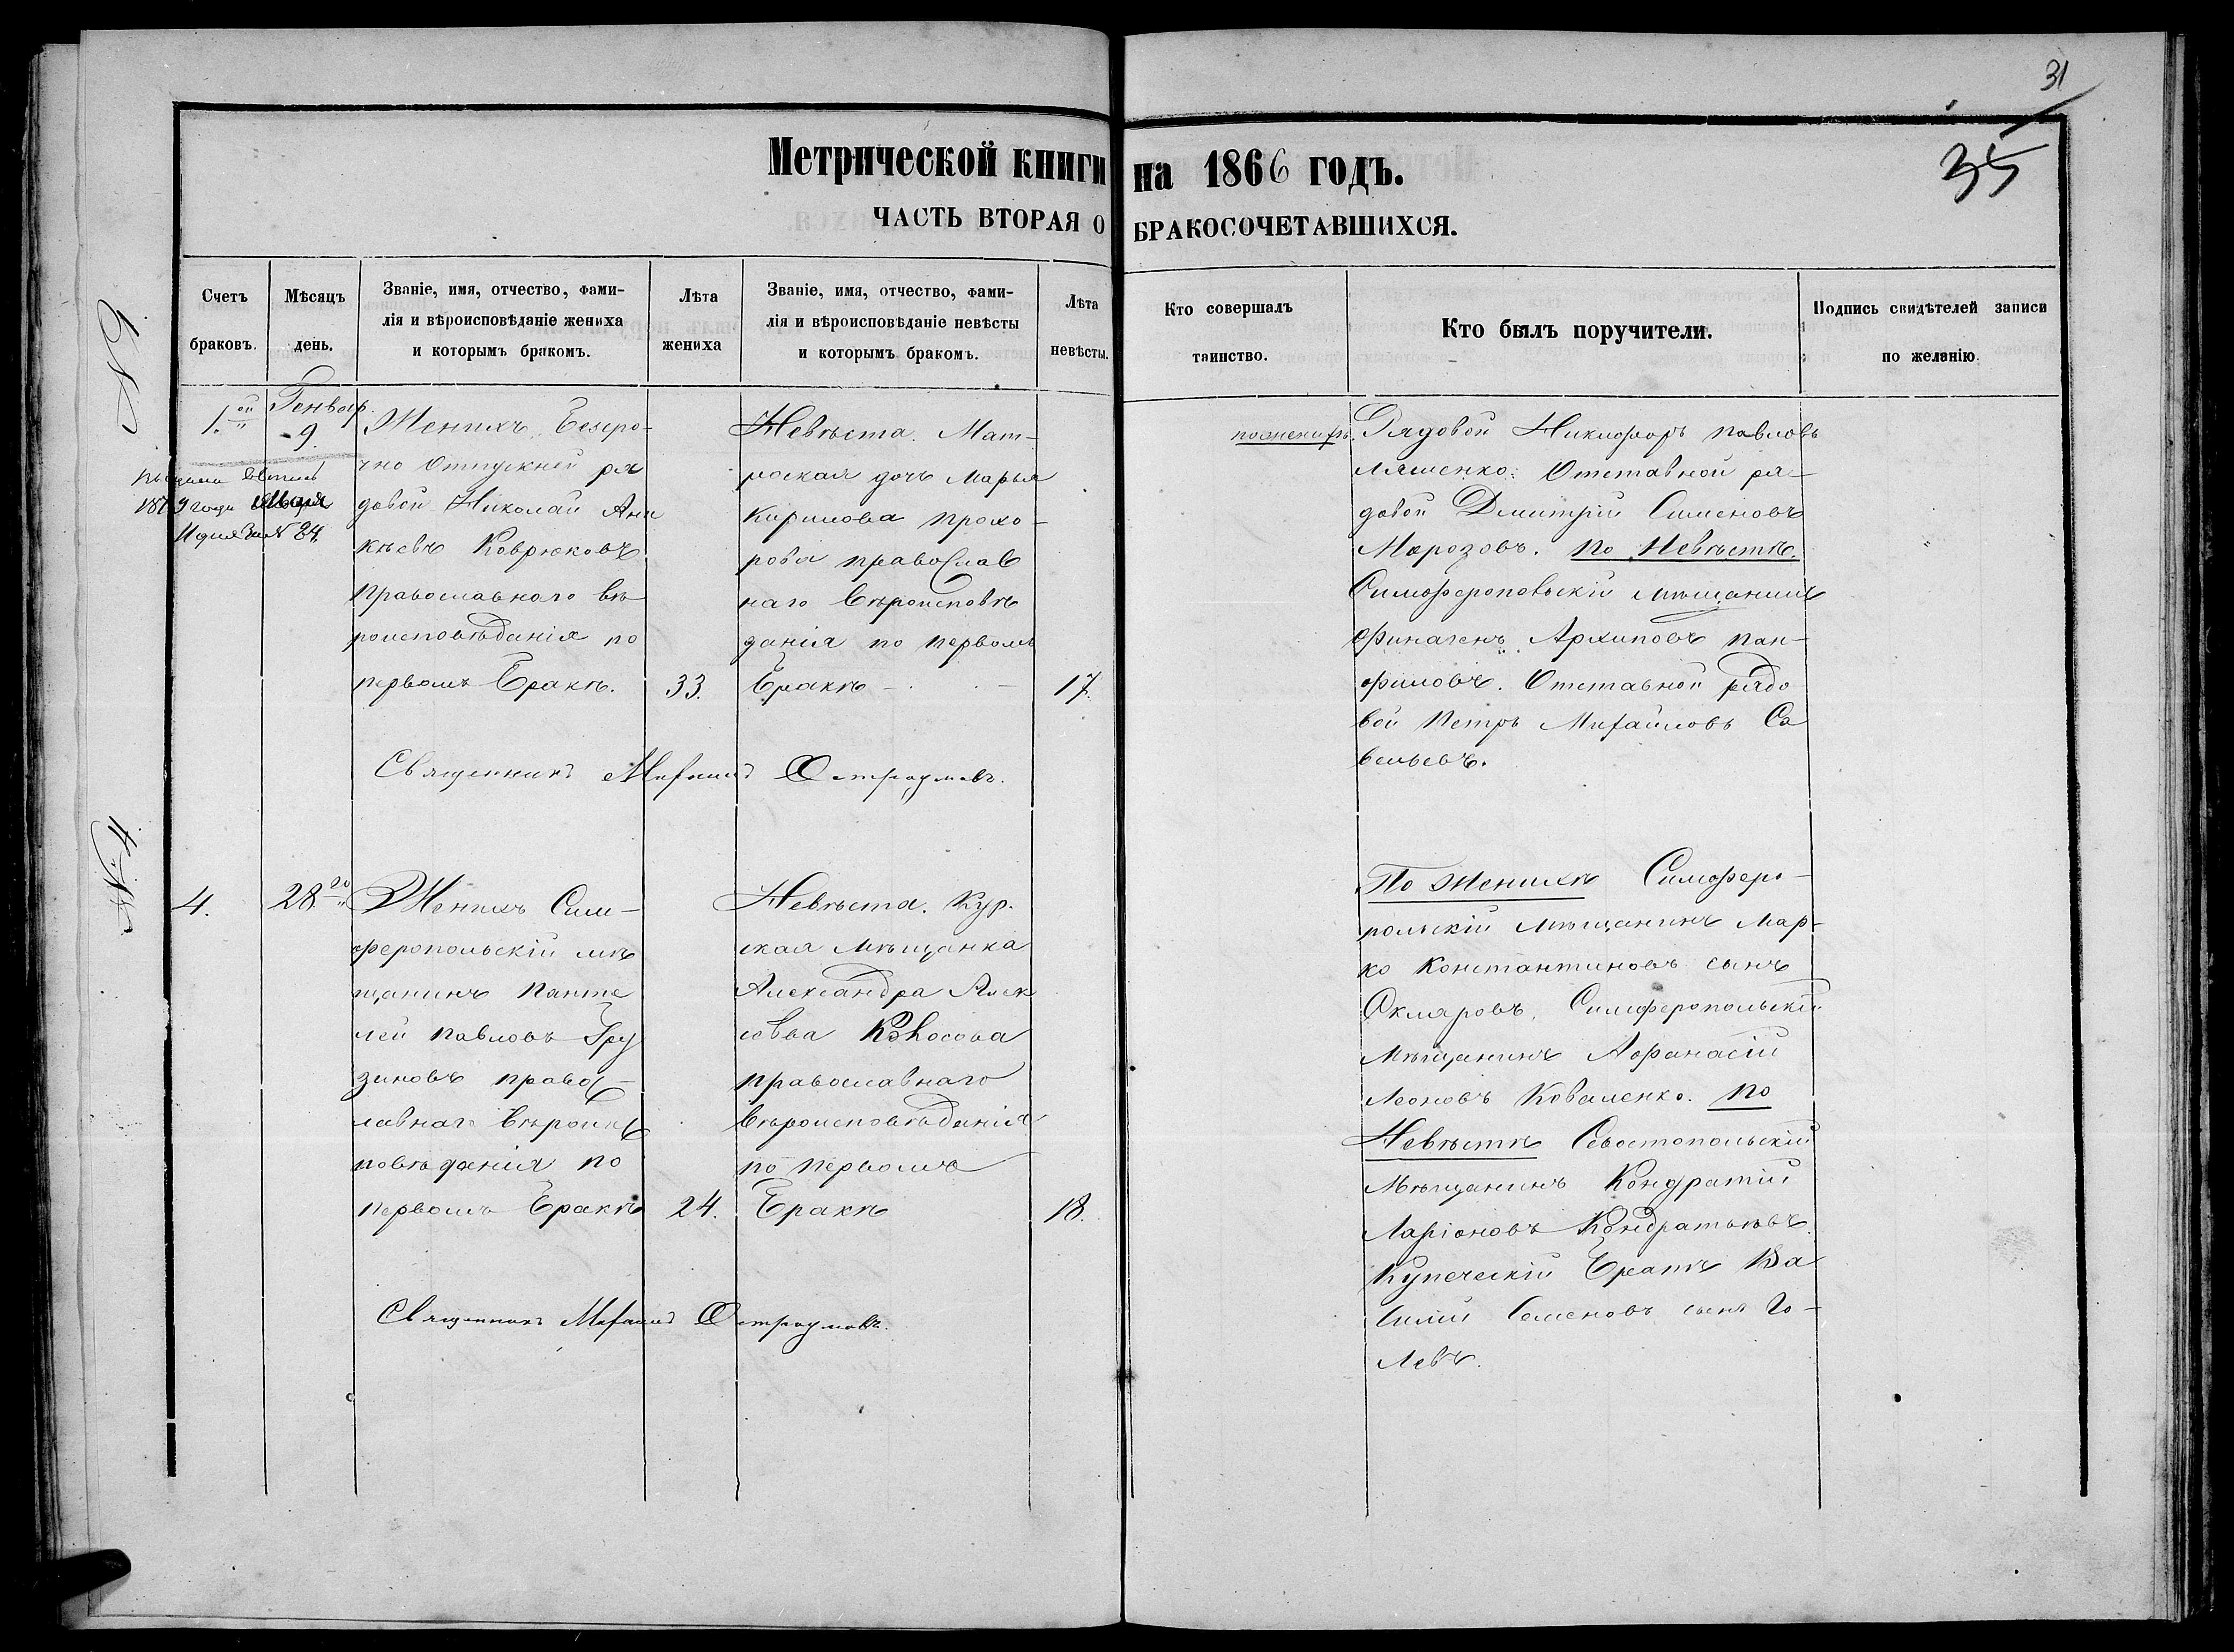 31
35
Метрической книги на 1866 годъ.
ЧАСТЬ ВТОРАЯ О БРАКОСОЧЕТАВШИХСЯ.
Счетъ браковъ.
Мѣсяцъ день.
Званіе, имя, отчество, фами-
лія и вѣроисповѣданіе жениха
и которымъ бракомъ.
Лѣта жениха
Званіе, имя, отчество, фами-
лія и вѣроисповѣданіе невѣсты
и которымъ бракомъ.
Лѣта невѣсты.
Кто совершалъ таинство.
Кто былъ поручители.
Подпись свидѣтелей записи
по желанію
1.ой
Генвар.
9.
Женихъ. Безсро-
чно Отпускной ря
довой Николай Ани
кѣевъ Коврюковъ
православнаго вѣ-
роисповѣданія по
первомъ бракѣ.
33.
Невѣста. Мат-
роская дочь Марья
Кирилова прохо-
рова православ
наго вѣроисповѣ
данія по первомъ
бракѣ
17.
по жениху.
Рядовой Никифоръ павловъ
Ляшенко. Отставной ря-
довой Дмитрій Сименовъ
Морозовъ. по Невѣстѣ.
Симферопольскій мѣщанинъ
Архиповъ пан-
филовъ. Отставной рядо
вой Петръ Михайловъ Са
вельевъ.
Священникъ Михаилъ Остроумовъ.
4.
28.го
Женихъ Сим-
феропольскій мѣ
щанинъ Панте
лей павловъ Гру
зиновъ правос-
лавнаго вѣроис
повѣданія по
первомъ бракѣ
24.
Невѣста. Кур.
ская мѣщанка
Александра Алек
сѣева
православнаго
вѣроисповѣданія
по первомъ
бракѣ
18.
По Женихѣ Симферо-
польскій мѣщанинъ Мар-
ко Константиновъ сынъ
Скляровъ. Симферопольскій
мѣщанинъ Афанасій
Леоновъ Коваленко. по
Невѣстѣ Севостопольскій
мѣщанинъ Кондратій
Ларіоновъ Кондратьевъ.
Купеческій братъ Ва
силій Семеновъ сынъ Го-
левъ.
Священникъ Михаилъ Остроумовъ.